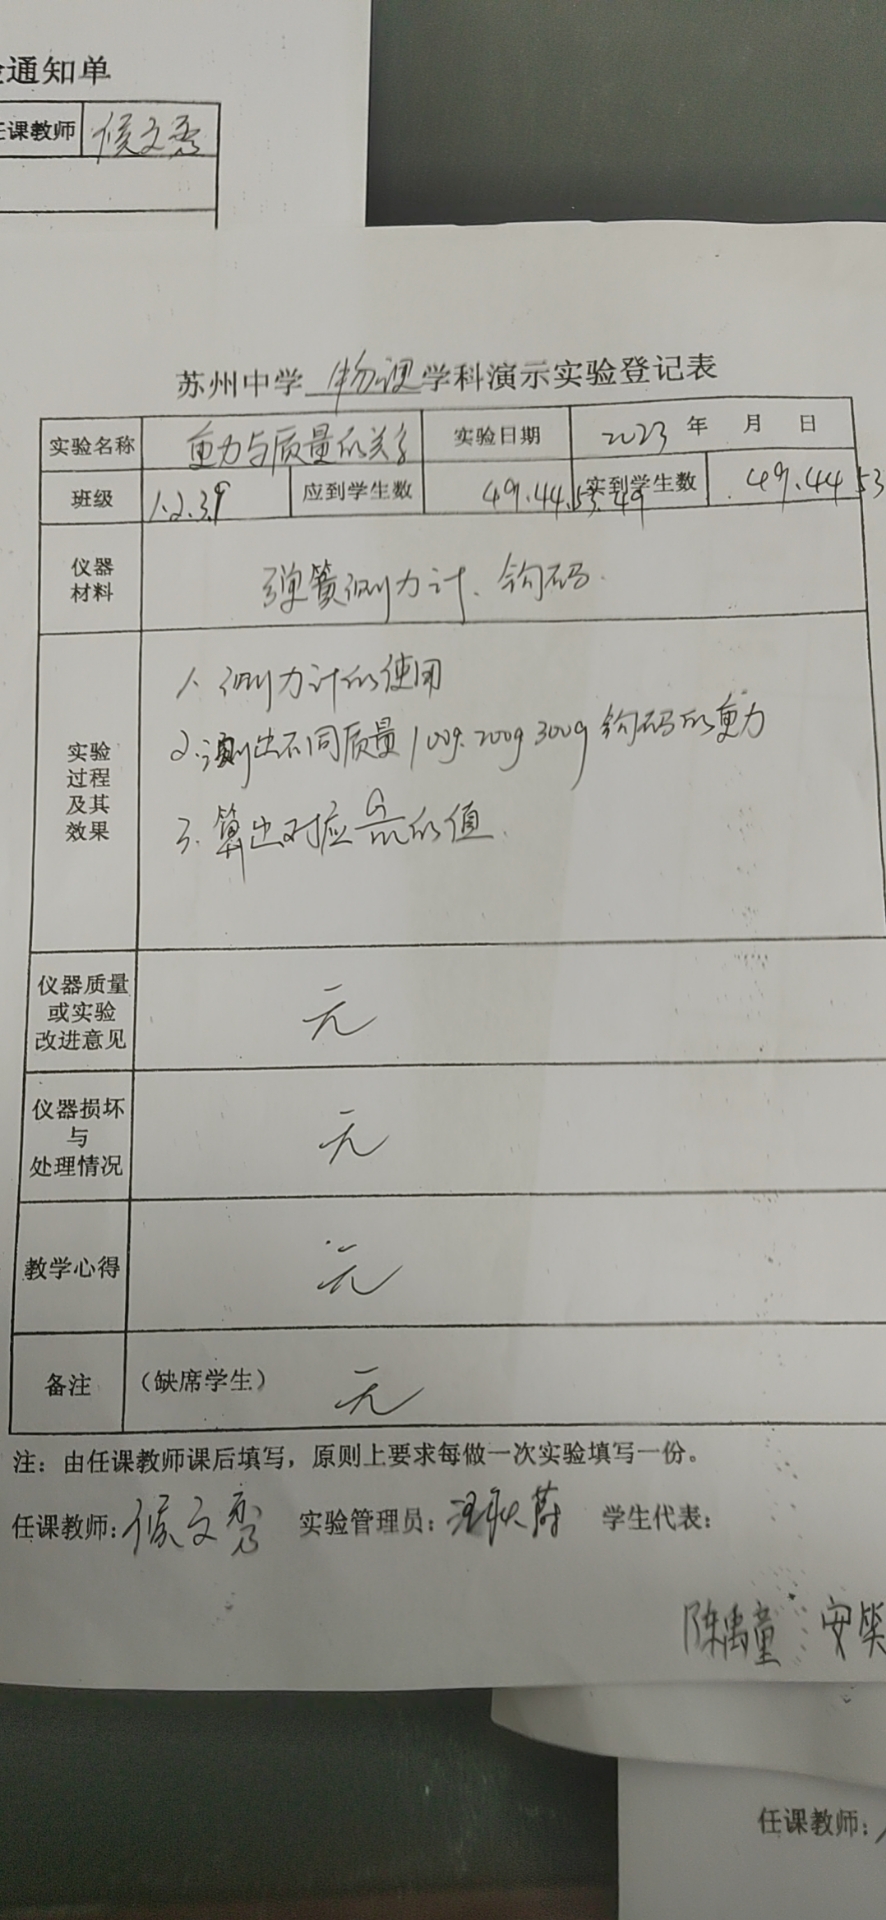 通知单
任课教师 侯文秀
苏州中学 物理 学科演示实验登记表
实验名称 重力与质量的关系 实验日期 2023 年 月 日
班级 1.2.3.9 应到学生数 49.44.53.49 实到学生数 49.44 53
仪器
材料
弹簧侧力计、钩码.
实验
过程
及其
效果
1、侧力计的使用
2.测出不同质量100g.200g 300g 钩码的重力
3.算出对应G/m的值.
仪器质量
或实验
改进意见
无
仪器损坏
与
处理情况
无
教学心得
无
备注
(缺席学生) 无
注：由任课教师课后填写，原则上要求每做一次实验填写一份。
任课教师：侯文秀 实验管理员： 学生代表：
陈禹童 安笑
任课教师：